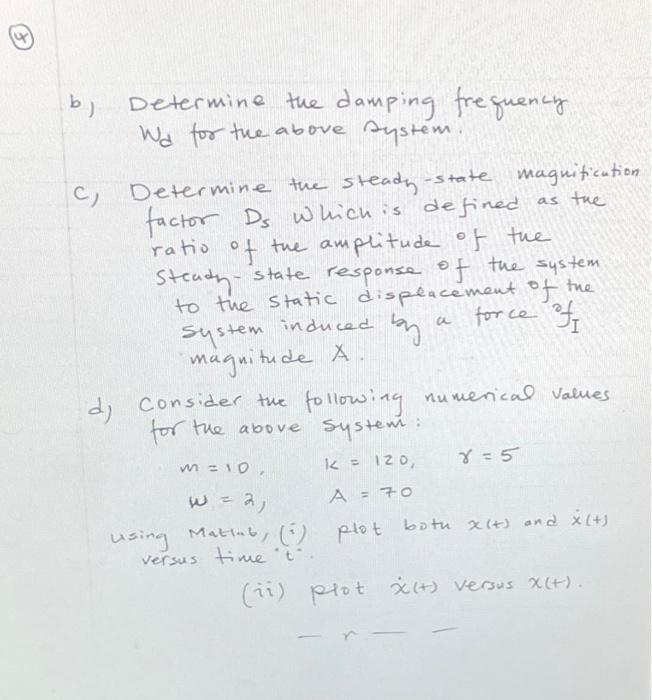 4
b) Determine the damping frequency
Wd for the above system.
c) Determine the steady-state magnification
factor Ds which is defined as the
ratio of the amplitude of the
steady-state response of the system
to the static displacement of the
system induced by a force of
magnitude A.
d) Consider the following numerical values
for the above system:
m = 10, k = 120, γ = 5
w = 2, A = 70
using Matlab, (i) plot both x(t) and ẋ(t)
versus time 't'.
(ii) plot ẋ(t) versus x(t).